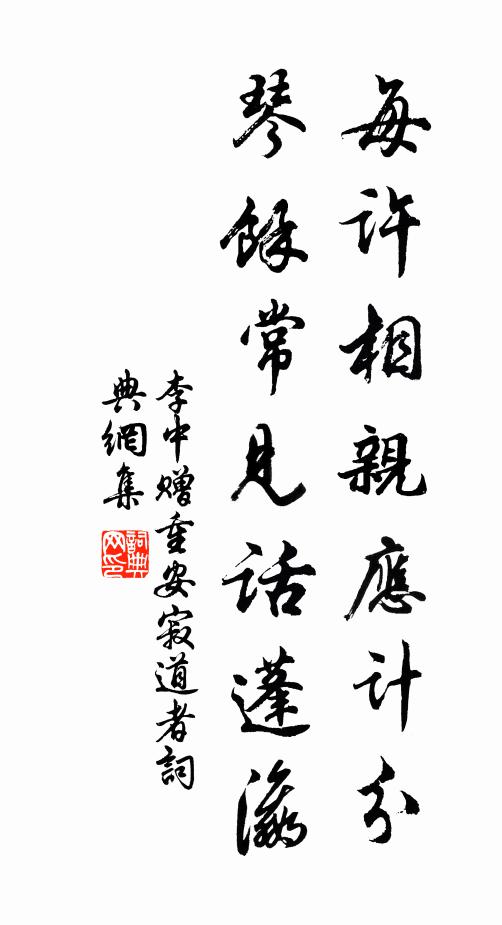 每許相親應計分
琴餘常見話蓬瀛
李中贈重安寂道者詞
典網集
詞典
网印